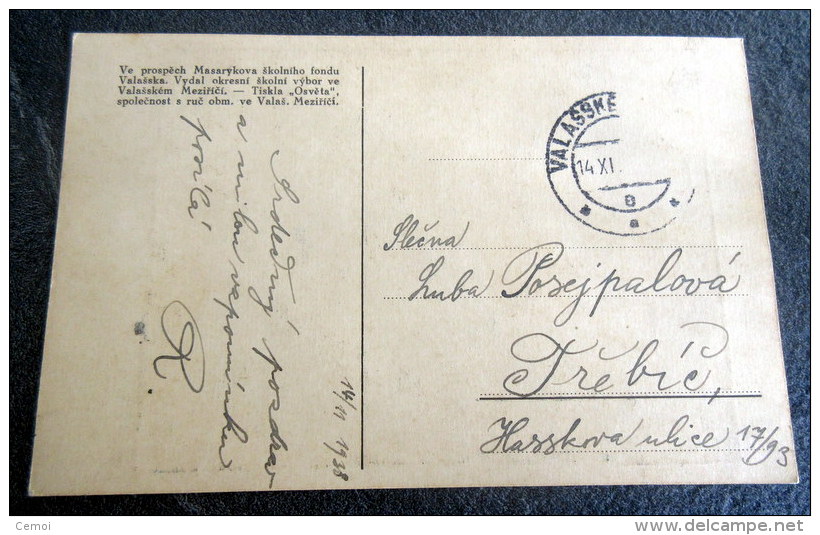 Ve prospěch Masarykova školního fondu
Valašska. Vydal okresní školní výbor ve
Valašském Meziříčí. — Tiskla „Osvěta",
společnost s ruč obm. ve Valaš. Meziříčí.
Srdečný pozdrav
a milou vzpomínku
posílá
R
14/11 1938
VALAŠSKÉ
14 XI.
Slečna
Luba Posejpalová
Třebíč,
ulice 17/93
Cemoi
www.delcampe.net